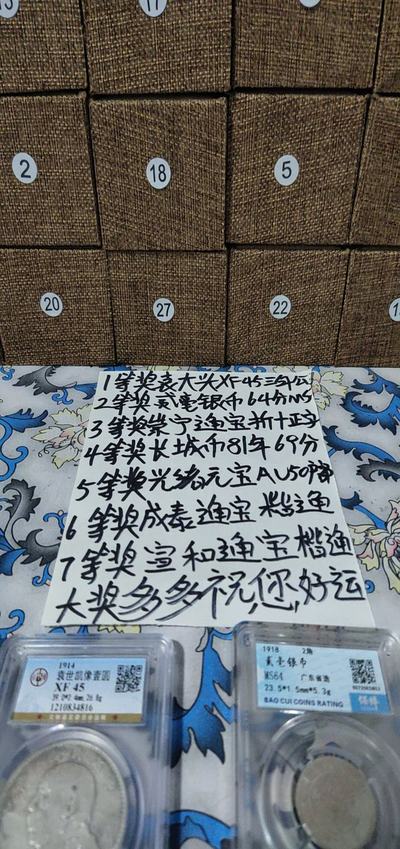 13
17
2
18
5
20
27
22
1等奖袁大头XF45三年公
2等奖贰毫银币64分MS
3等奖崇宁通宝折十正字
4等奖长城币81年69分
5等奖光绪元宝AU50
6等奖成泰通宝楷通
7等奖宣和通宝楷通
大奖多多祝,您,好运
1914
袁世凯像壹圆
XF 45
1210834816
1918 2角
贰毫银币
MS64 广东省造
23.5*1.5mm*5.3g
BAO CUI COINS RATING